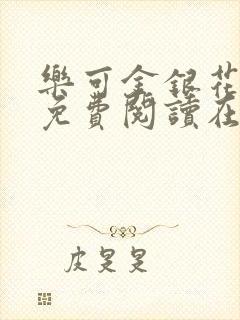 樂可金銀花
免費閱讀在
皮旻旻